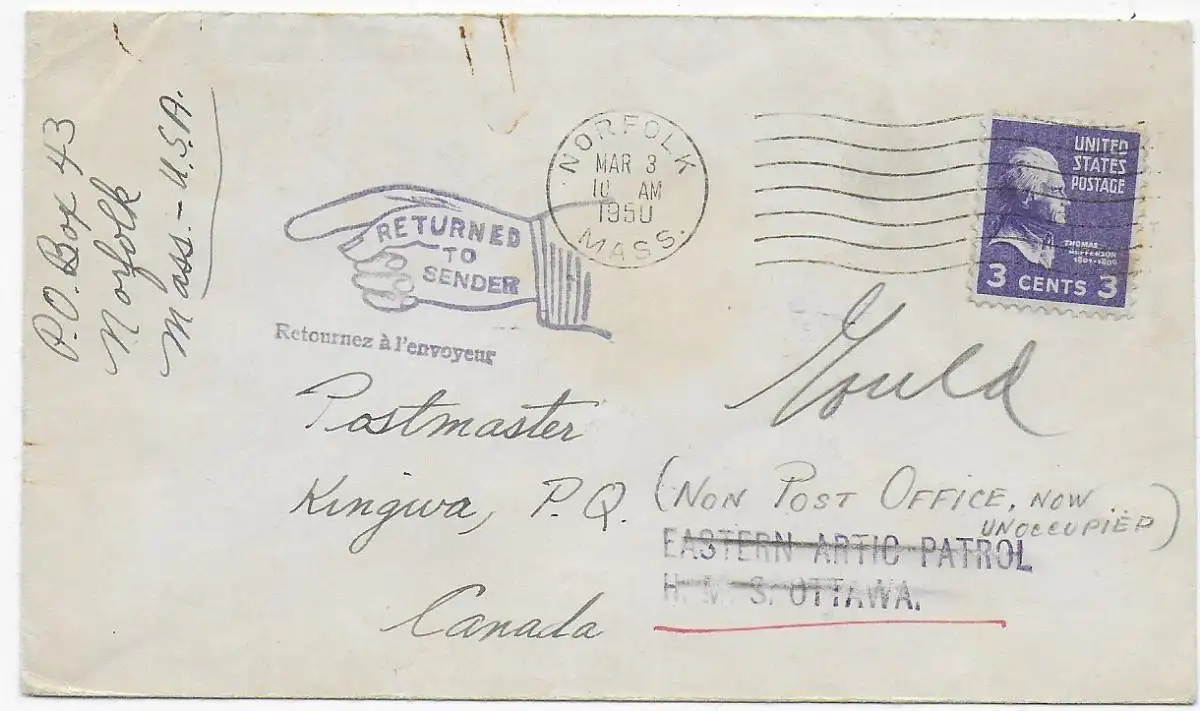 P.O. Box 43
Norfolk
Mass. - U.S.A.
NORFOLK
MAR 3
10 AM
1950
MASS.
UNITED
STATES
POSTAGE
THOMAS
JEFFERSON
1801-1809
3 CENTS 3
RETURNED
TO
SENDER
Retournez à l'envoyeur
Gould
Postmaster
Kingwa, P.Q. (NON POST OFFICE, NOW
UNOCCUPIED)
EASTERN ARTIC PATROL
H. M. S. OTTAWA.
Canada